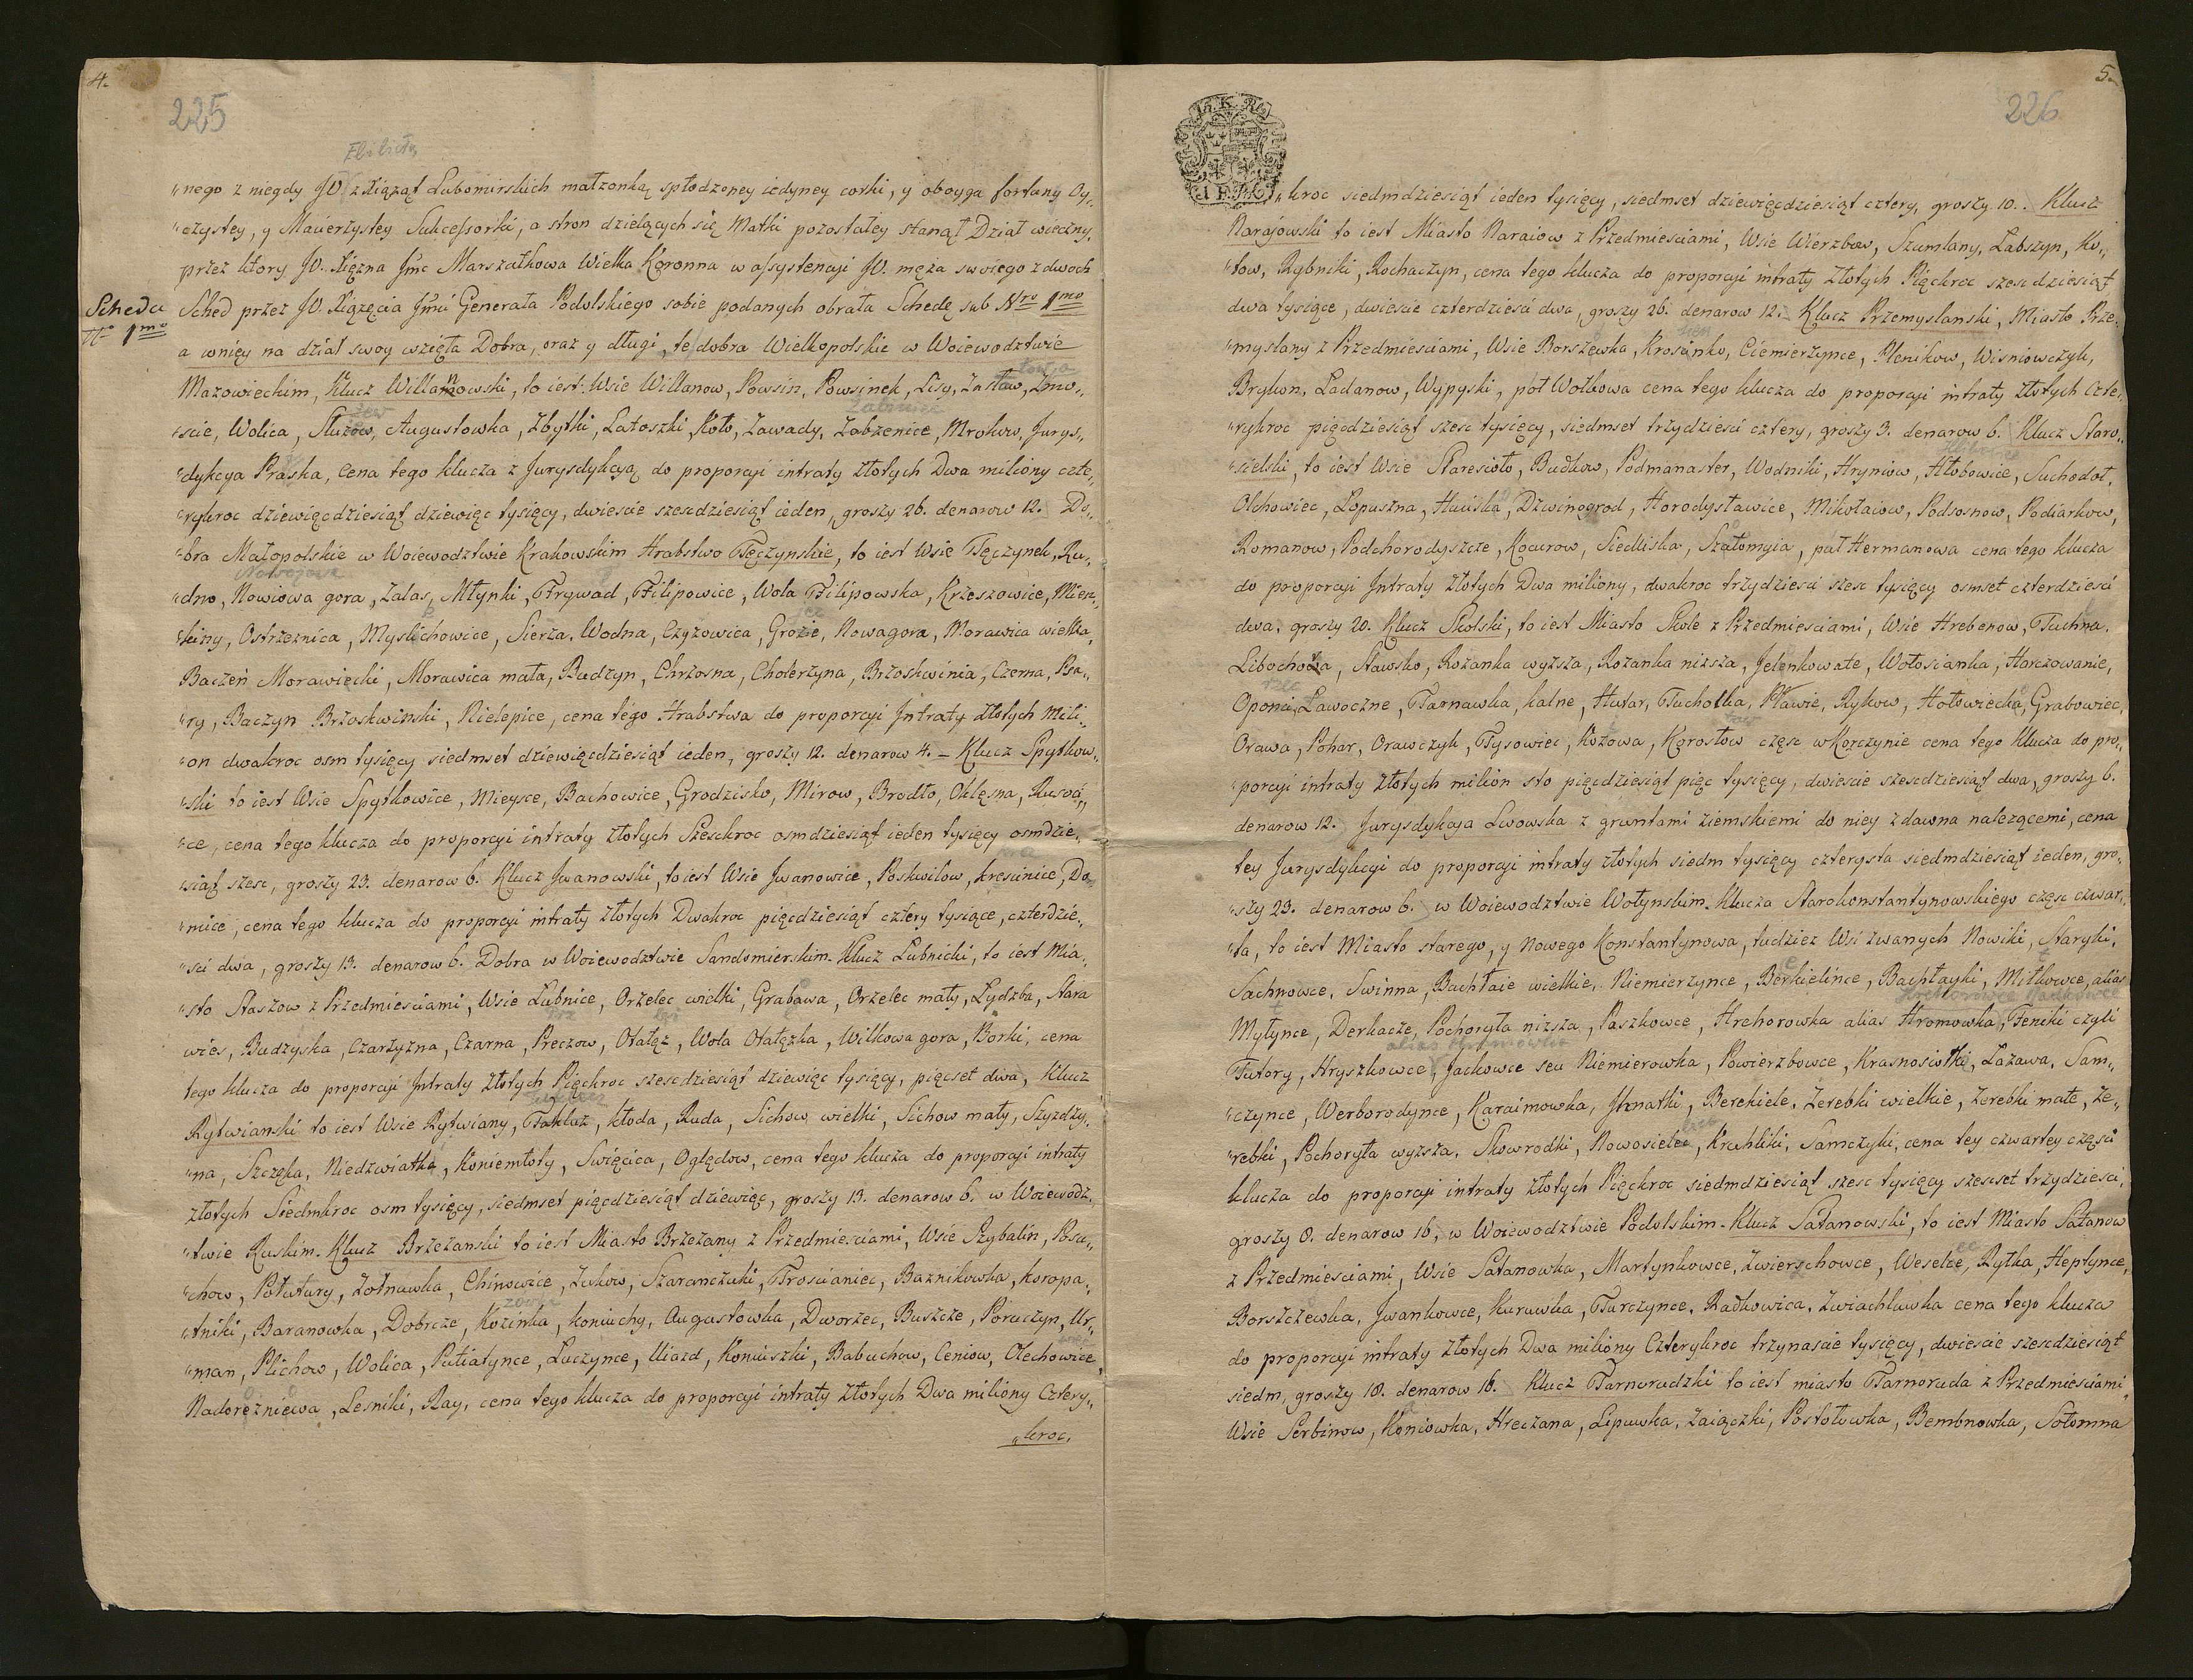 4.
225
Elżbietą
„nego z niegdy JO. Xiążąt Lubomirskich małżonką spłodzoney iedyney corki, y oboyga fortuny Oy„
„czystey, y Macierzystey Sukcessorki, a stron dzielących się Matki pozostałey stanął Dział wieczny,
przez ktory JO. Xiężna Jmc Marszałkowa Wielka Koronna w assystencyi JO. męża swoiego z dwoch
Scheda
Nro 1mo
Sched przez JO. Xiążęcia Jmci Generała Podolskiego sobie podanych obrała Schedę sub Nro 1mo
a wnięy na dział swoy wzięła Dobra, oraz y długi, te dobra Wielkopolskie w Woiewodztwie
Mazowieckim, Klucz Willanowski, to iest: Wsie Willanow, Powsin, Powsinek, Lisy, Zasław, Zmo„
„scie, Wolica, Służow, Augustowka, Zbytki, Latoszki, Koło, Zawady, Zabzenice, Mrokow, Jurys„
„dykcya Praska, Cena tego klucza z Jurysdykcyą do proporcyi intraty Złotych Dwa miliony czte„
„rykroc dziewięcdziesiąt dziewięc tysięcy, dwiescie szescdziesiąt ieden, groszy 26. denarow 12. Do„
„bra Małopolskie w Woiewodztwie Krakowskim Hrabstwo Tęczynskie, to iest Wsie Tęczynek, Ru„
„dno, Nowiowa gora, Zalas, Młynki, Frywad, Filipowice, Wola Filipowska, Krzeszowice, Mien„
„kiny, Ostrzeznica, Myslichowice, Siersza, Wodna, Czyżowica, Groźie, Nowagora, Morawica wielka,
Baczeń Morawiecki, Morawica mała, Budzyn, Chrzosna, Cholerzyna, Brzoskwinia, Czerna, Pia„
„ry, Baczyn Brzoskwinski, Nielepice, cena tego Hrabstwa do proporcyi Intraty Złotych Mili„
„on dwakroc osm tysięcy siedmset dziewięcdziesiąt ieden, groszy 12. denarow 4. – Klucz Spytkow„
„ski to iest Wsie Spytkowice, Mieysce, Bachowice, Grodzisko, Mirow, Brodło, Oklęsna, Rusoci„
„ce, cena tego klucza do proporcyi intraty złotych Szesckroc osmdziesiąt ieden tysięcy osmdzie„
„siąt szesc, groszy 23. denarow 6. Klucz Jwanowski, to iest Wsie Jwanowice, Poskwitow, Krescinice, Da„
„mice, cena tego klucza do proporcyi intraty złotych Dwakroc pięcdziesiąt cztery tysiące, czterdzie„
„sci dwa, groszy 13. denarow 6. Dobra w Woiewodztwie Sandomierskim. Klucz Lubnicki, to iest Mia„
„sto Staszow z Przedmiesciami, Wsie Łubnice, Orzelec wielki, Grabawa, Orzelec mały, Łydzba, Stara
wies, Budzyska, Czarzyzna, Czarna, Preczow, Otałąż, Wola Otałązka, Wilkowa gora, Borki, cena
tego klucza do proporcyi Intraty Złotych Pięckroc szescdziesiąt dziewięc tysięcy, pięcset dwa, Klucz
Rytwianski to iest Wsie Rytwiany, Taklaż, Kłoda, Ruda, Sichow wielki, Sichow mały, Szyzdzy„
„na, Szczęka, Niedzwiatka, Koniemłoty, Swięcica, Oględow, cena tego klucza do proporcyi intraty
złotych Siedmkroc osm tysięcy, siedmset pięcdziesiąt dziewięc, groszy 13. denarow 6. w Woiewodz„
„twie Ruskim. Klucz Brzezanski to iest Miasto Brzezany z Przedmiesciami, Wsie Szybalin, Posu„
„chow, Potutury, Zołnuwka, Chinowice, Zukow, Szaranczuki, Trosćianiec, Baznikowka, Koropa„
„tniki, Baranowka, Dobrcze, Kozinka, Koniuchy, Augustowka, Dworzec, Buszcze, Poruczyn, Ur„
„man, Plichow, Wolica, Putiatynce, Luczynce, Uiazd, Koniuszki, Babuchow, Ceniow, Olechowiee,
Nadoręzniewa, Lesniki, Ray, cena tego klucza do proporcyi intraty Złotych Dwa miliony Cztery„
„kroc,
5.
226
„kroc siedmdziesiąt ieden tysięcy, siedmset dziewięcdziesiąt cztery, groszy 10. Klucz
Narajowski to iest Miasto Naraiow z Przedmiesciami, Wsie Wierzbow, Szumlany, Labszyn, Ko„
„tow, Rybniki, Rochaczyn, cena tego klucza do proporcyi intraty Złotych Pięckroc szescdziesiąt
dwa tysiące, dwiescie czterdziesci dwa, groszy 26. denarow 12. Klucz Przemyslanski, Miasto Prze„
„myslany z Przedmiesciami, Wsie Borszewka, Krosinko, Ciemierzynce, Plenikow, Wisniowczyk,
Brykon, Ladanow, Wypyski, poł Wołkowa cena tego klucza do proporcyi intraty złotych Czte„
„rykroc pięcdziesiąt szesc tysięcy, siedmset trzydziesci cztery, groszy 3. denarow 6. Klucz Staro„
„sielski, to iest Wsie Staresioło, Budkow, Podmanaster, Wodniki, Hryniow, Hłobowice, Suchodoł,
Olchowiec, Lopuszna, Huiska, Dzwinogrod, Horodysławice, Mikołaiow, Podsosnow, Podiarkow,
Romanow, Podchorodyszcze, Kocurow, Siedliska, Szołomyia, puł Hermanowa cena tego klucza
do proporcyi Intraty Złotych Dwa miliony, dwakroc trzydziesci szesc tysięcy osmset czterdziesci
dwa, groszy 20. Klucz Skolski, to iest Miasto Skole z Przedmiesciami, Wsie Hrebenow, Tuchna,
Libochoba, Sławsko, Rozanka wyzsza, Rozanka nizsza, Jelenkowate, Wołosianka, Harczowanie,
Oponie, Ławoczne, Tarnawka, Kalne, Hutar, Tucholka, Pławie, Rykow, Hołowiecka, Grabowiec,
Orawa, Pohar, Orawczyk, Tysowiec, Kozowa, Korostow częsc w Korczynie cena tego klucza do pro„
„porcyi intraty Złotych milion sto pięcdziesiąt pięc tysięcy, dwiescie szescdziesiąt dwa, groszy 6.
denarow 12. Jurysdykcya Lwowska z gruntami ziemskiemi do niey zdawna nalezącemi, cena
tey Jurysdykcyi do proporcyi intraty złotych siedm tysięcy czterysta siedmdziesiąt ieden, gro„
„szy 23. denarow 6. w Woiewodztwie Wołynskim. Klucza Starokonstantynowskiego częsc czwar„
„ta, to iest Miasto starego, y Nowego Konstantynowa, tudziez Wsi zwanych Nowiki, Staryki,
Sachnowce, Swinna, Bachłaie wielkie, Niemierzynce, Berkielince, Bachłayki, Mitkowce, alias
Mytynce, Derkacze, Pochoryła nizsza, Paszkowce, Hrehorowka alias Hromowka, Feniki czyli
alias Hromowka
Futory, Hryszkowce, Jackowce seu Niemierowka, Powierzbowce, Krasnosiołki, Łazawa, Sam„
„czynce, Werborodynce, Karaimowka, Jhnatki, Berekiele, Zerebki wielkie, Zerebki małe, Ze„
„rebki, Pochoryła wyzsza, Skowrodki, Nowosielec, Kruhliki, Samczyki, cena tey czwartey częsci
klucza do proporcyi intraty złotych Pięckroc siedmdziesiąt szesc tysięcy szescset trzydziesci,
groszy 8. denarow 16, w Woiewodztwie Podolskim. Klucz Satanowski, to iest Miasto Satanow
z Przedmiesciami, Wsie Satanowka, Martynkowce, Zwierschowce, Weselce, Rytka, Heptynce,
Borszczewka, Jwankowce, Kurawka, Turczynce, Radkowica, Zwiachlawka cena tego klucza
do proporcyi intraty złotych Dwa miliony Czterykroc trzynascie tysięcy, dwiescie szescdziesiąt
siedm, groszy 18. denarow 16. Klucz Tarnorudzki to iest miasto Tarnoruda z Przedmiesciami
Wsie Serbinow, Koniowka, Hreczana, Lipuwka, Zaiączki, Postołowka, Bembnowka, Sołomna